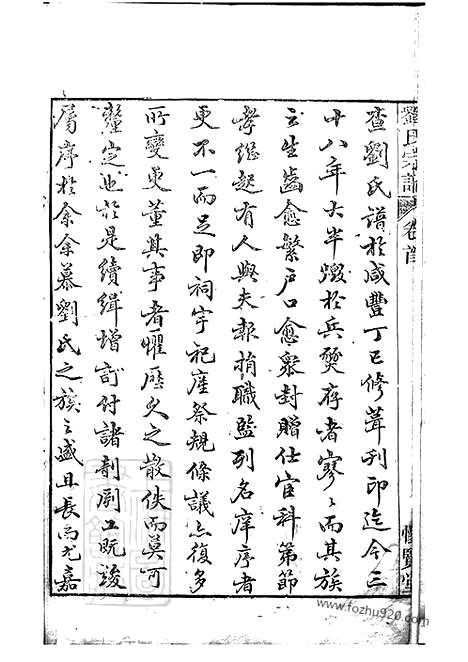 劉氏宗譜 卷首
查劉氏譜於咸豐丁巳修葺刊印迄今三
十八年大半燬於兵燹存者寥寥而其族
之生齒愈繁戶口愈衆封贈仕宦科第節
孝繼起有人與夫報捐職監列名庠序者
更不一而足即祠宇祀產祭規條議亦復多
所變更董其事者懼歷久之散佚而莫可
釐定也於是續緝增訂付諸剞劂工既竣
屬序於余余慕劉氏之族之盛且長而尤嘉
www.fozhu920.com